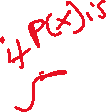 if P(x) is